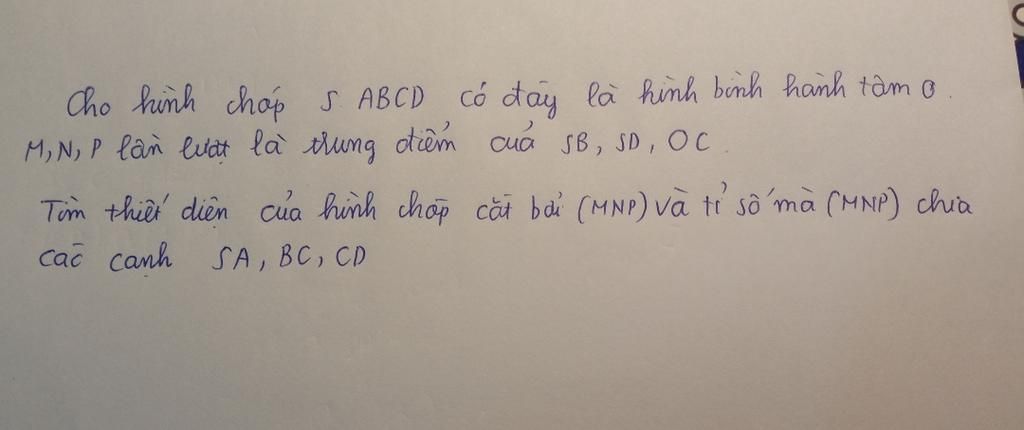 Cho hình chóp S. ABCD có đáy là hình bình hành tâm O.
M, N, P lần lượt là trung điểm của SB, SD, OC.
Tìm thiết diện của hình chóp cắt bởi (MNP) và tỉ số mà (MNP) chia
các cạnh SA, BC, CD